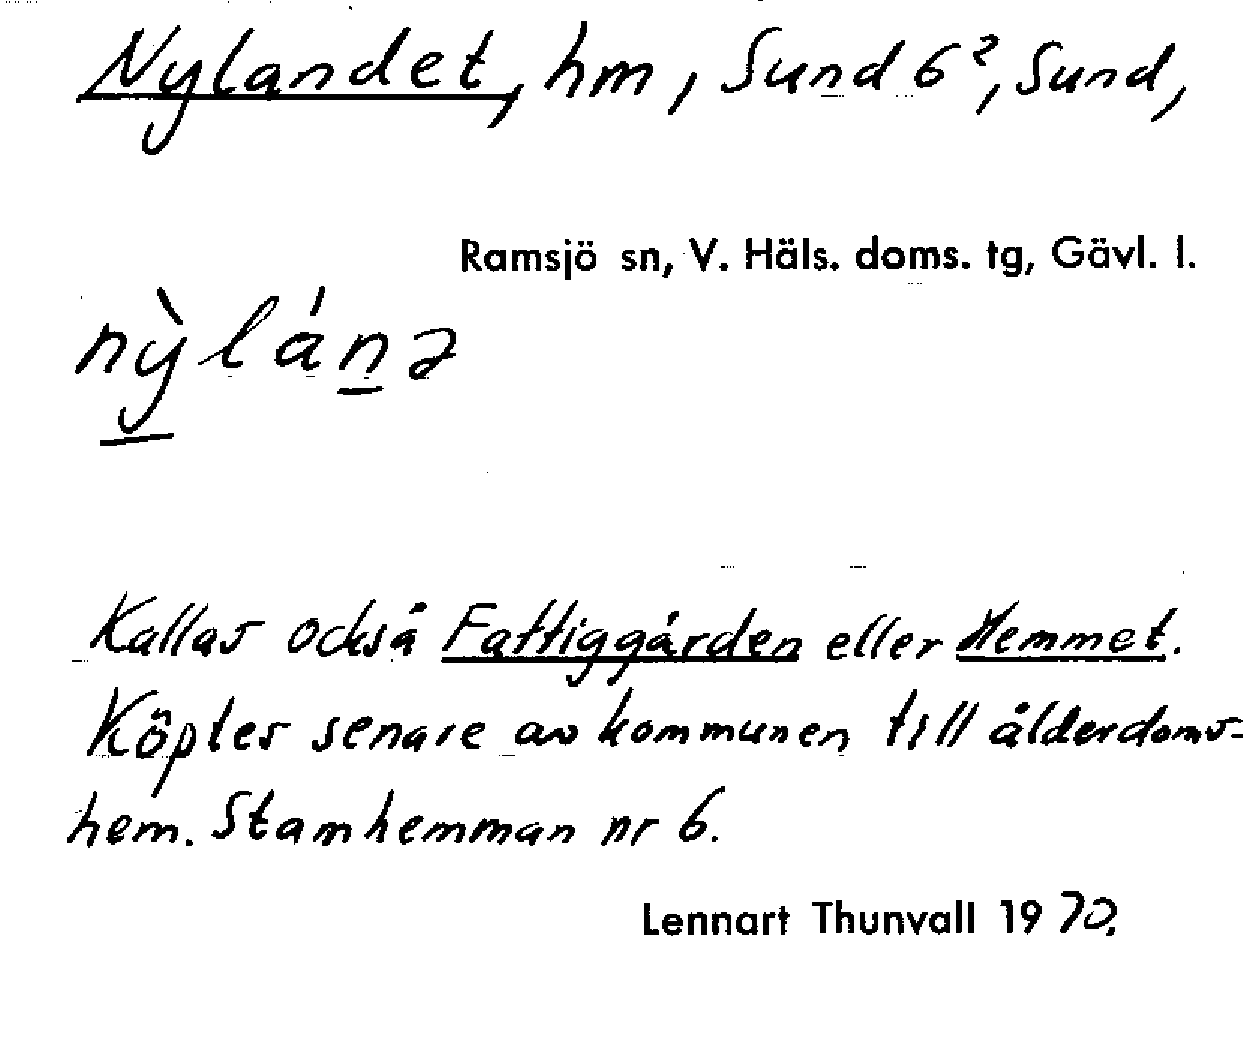 Nylandet, hm, Sund 6², Sund,
Ramsjö sn, V. Häls. doms. tg, Gävl. l.
nỳlánə
Kallas också Fattiggården eller Hemmet.
Köptes senare av kommunen till ålderdoms-
hem. Stamhemman nr 6.
Lennart Thunvall 1970.